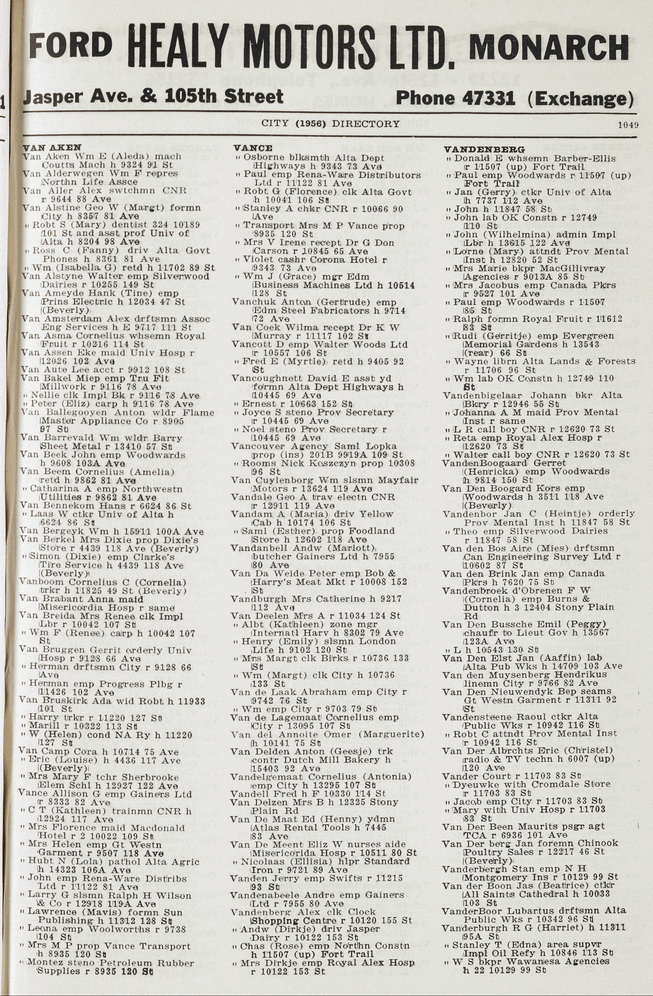 FORD HEALY MOTORS LTD. MONARCH
Jasper Ave. & 105th Street Phone 47331 (Exchange)
CITY (1956) DIRECTORY 1049
VAN AKEN
Van Aken Wm E (Aleda) mach
Coutts Mach h 9324 91 St
Van Alderwegen Wm F repres
Northn Life Assce
Van Aller Alex swtchmn CNR
r 9644 88 Ave
Van Alstine Geo W (Margt) formn
City h 8357 81 Ave
" Robt S (Mary) dentist 324 10189
101 St and asst prof Univ of
Alta h 8204 98 Ave
" Ross C (Fanny) driv Alta Govt
Phones h 8361 81 Ave
" Wm (Isabella G) retd h 11702 89 St
Van Alstyne Walter emp Silverwood
Dairies r 10255 149 St
Van Ameyde Hank (Tine) emp
Prins Electric h 12034 47 St
(Beverly)
Van Amsterdam Alex drftsmn Assoc
Eng Services h E 9717 111 St
Van Asma Cornelius whsemn Royal
Fruit r 10216 114 St
Van Assen Eke maid Univ Hosp r
12026 102 Ave
Van Aute Lee acct r 9912 108 St
Van Bakel Miep emp Tru Fit
Millwork r 9116 78 Ave
" Nellie clk Impl Bk r 9116 78 Ave
" Peter (Eliz) carp h 9116 78 Ave
Van Ballegooyen Anton wldr Flame
Master Appliance Co r 8905
97 St
Van Barrevald Wm wldr Barry
Sheet Metal r 13410 57 St
Van Beek John emp Woodwards
h 9608 103A Ave
Van Beem Cornelius (Amelia)
retd h 9862 81 Ave
" Catharina A emp Northwestn
Utilities r 9862 81 Ave
Van Bennekom Hans r 6624 86 St
" Laas W ctkr Univ of Alta h
6624 86 St
Van Bergeyk Wm h 15911 100A Ave
Van Berkel Mrs Dixie prop Dixie's
Store r 4439 118 Ave (Beverly)
" Simon (Dixie) emp Clarke's
Tire Service h 4439 118 Ave
(Beverly)
Vanboom Cornelius C (Cornelia)
trkr h 11825 49 St (Beverly)
Van Brabant Anna maid
Misericordia Hosp r same
Van Breida Mrs Renee clk Impl
Lbr r 10042 107 St
" Wm F (Renee) carp h 10042 107
St
Van Bruggen Gerrit orderly Univ
Hosp r 9128 66 Ave
" Herman drftsmn City r 9128 66
Ave
" Herman emp Progress Plbg r
11426 102 Ave
Van Bruskirk Ada wid Robt h 11933
101 St
" Harry trkr r 11220 127 St
" Marill r 10322 113 St
" W (Helen) cond NA Ry h 11220
127 St
Van Camp Cora h 10714 75 Ave
" Eric (Louise) h 4436 117 Ave
(Beverly)
" Mrs Mary F tchr Sherbrooke
Elem Schl h 12927 122 Ave
Vance Allison G emp Gainers Ltd
r 8333 82 Ave
" C T (Kathleen) trainmn CNR h
12924 117 Ave
" Mrs Florence maid Macdonald
Hotel r 2 10022 109 St
" Mrs Helen emp Gt Westn
Garment r 9507 118 Ave
" Hubt N (Lola) pathol Alta Agric
h 14323 106A Ave
" John emp Rena-Ware Distribs
Ltd r 11122 81 Ave
" Larry G slsmn Ralph H Wilson
& Co r 12918 119A Ave
" Lawrence (Mavis) formn Sun
Publishing h 11312 128 St
" Leona emp Woolworths r 9738
104 St
" Mrs M P prop Vance Transport
h 8935 120 St
" Montez steno Petroleum Rubber
Supplies r 8935 120 St
VANCE
" Osborne blksmth Alta Dept
Highways h 9343 73 Ave
" Paul emp Rena-Ware Distributors
Ltd r 11122 81 Ave
" Robt G (Florence) clk Alta Govt
h 10041 106 St
" Stanley A chkr CNR r 10066 90
Ave
" Transport Mrs M P Vance prop
8935 120 St
" Mrs V Irene recept Dr G Don
Carson r 10845 65 Ave
" Violet cashr Corona Hotel r
9343 73 Ave
" Wm J (Grace) mgr Edm
Business Machines Ltd h 10514
128 St
Vanchuk Anton (Gertrude) emp
Edm Steel Fabricators h 9714
72 Ave
Van Coek Wilma recept Dr K W
Murray r 11117 102 St
Vancott D emp Walter Woods Ltd
r 10557 106 St
" Fred E (Myrtle) retd h 9405 92
St
Vancoughnett David E asst yd
formn Alta Dept Highways h
10445 69 Ave
" Ernest r 10663 152 St
" Joyce S steno Prov Secretary
r 10445 69 Ave
" Noel steno Prov Secretary r
10445 69 Ave
Vancouver Agency Saml Lopka
prop (ins) 201B 9919A 109 St
" Rooms Nick Koszczyn prop 10308
96 St
Van Cuylenborg Wm slsmn Mayfair
Motors r 13624 119 Ave
Vandale Geo A trav electn CNR
r 12911 119 Ave
Vandan A (Maria) driv Yellow
Cab h 10174 106 St
" Saml (Esther) prop Foodland
Store h 12602 118 Ave
Vandanbell Andw (Mariott)
butcher Gainers Ltd h 7955
80 Ave
Van Da Weide Peter emp Bob &
Harry's Meat Mkt r 10008 152
St
Vandburgh Mrs Catherine h 9217
112 Ave
Van Deelen Mrs A r 11034 124 St
" Albt (Kathleen) zone mgr
Internatl Harv h 8302 79 Ave
" Henry (Emily) slsmn London
Life h 9102 120 St
" Mrs Margt clk Birks r 10736 133
St
" Wm (Margt) clk City h 10736
133 St
Van de Laak Abraham emp City r
9742 76 St
" Wm emp City r 9703 79 St
Van de Lagemaat Cornelius emp
City r 13095 107 St
Van del Annoite Omer (Marguerite)
h 10141 75 St
Van Delden Anton (Geesje) trk
contr Dutch Mill Bakery h
15403 92 Ave
Vandelgemaat Cornelius (Antonia)
emp City h 13295 107 St
Vandell Fred h F 10330 114 St
Van Delzen Mrs B h 12325 Stony
Plain Rd
Van De Maat Ed (Henny) ydmn
Atlas Rental Tools h 7445
83 Ave
Van De Meent Eliz W nurses aide
Misericordia Hosp r 10511 80 St
" Nicolnas (Ellisia) hlpr Standard
Iron r 9721 89 Ave
Vanden Jerry emp Swifts r 11215
93 St
Vandenabeele Andre emp Gainers
Ltd r 7955 80 Ave
Vandenberg Alex clk Clock
Shopping Centre r 10120 155 St
" Andw (Dirkje) driv Jasper
Dairy r 10122 153 St
" Chas (Rose) emp Northn Constn
h 11507 (up) Fort Trail
" Mrs Dirkje emp Royal Alex Hosp
r 10122 153 St
VANDENBERG
" Donald E whsemn Barber-Ellis
r 11507 (up) Fort Trail
" Paul emp Woodwards r 11507 (up)
Fort Trail
" Jan (Gerry) ctkr Univ of Alta
h 7737 112 Ave
" John h 11847 58 St
" John lab OK Constn r 12749
110 St
" John (Wilhelmina) admin Impl
Lbr h 13615 122 Ave
" Lorne (Mary) attndt Prov Mental
Inst h 12820 52 St
" Mrs Marie bkpr MacGillivray
Agencies r 9013A 85 St
" Mrs Jacobus emp Canada Pkrs
r 9527 101 Ave
" Paul emp Woodwards r 11507
85 St
" Ralph formn Royal Fruit r 11612
83 St
" Rudi (Gerritje) emp Evergreen
Memorial Gardens h 13543
(rear) 66 St
" Wayne librn Alta Lands & Forests
r 11706 96 St
" Wm lab OK Constn h 12749 110
St
Vandenbigelaar Johann bkr Alta
Bkry r 12946 55 St
" Johanna A M maid Prov Mental
Inst r same
" L R call boy CNR r 12620 73 St
" Reta emp Royal Alex Hosp r
12620 73 St
" Walter call boy CNR r 12620 73 St
VandenBoogaard Gerret
(Henricka) emp Woodwards
h 9814 150 St
Van Den Boogard Kors emp
Woodwards h 3511 118 Ave
(Beverly)
Vandenbor Jan C (Heintje) orderly
Prov Mental Inst h 11847 58 St
" Theo emp Silverwood Dairies
r 11847 58 St
Van den Bos Aire (Mies) drftsmn
Can Engineering Survey Ltd r
10602 87 St
Van den Brink Jan emp Canada
Pkrs h 7620 75 St
Vandenbroek d'Obrenen F W
(Cornelia) emp Burns &
Dutton h 3 12404 Stony Plain
Rd
Van Den Bussche Emil (Peggy)
chaufr to Lieut Gov h 13567
123A Ave
" L h 10543 130 St
Van Den Elst Jan (Aaffin) lab
Alta Pub Wks h 14709 103 Ave
van den Muysenberg Hendrikus
linemn City r 9766 82 Ave
Van Den Nieuwendyk Bep seams
Gt Westn Garment r 11311 92
St
Vandensteene Raoul ctkr Alta
Public Wks r 10942 116 St
" Robt C attndt Prov Mental Inst
r 10942 116 St
Van Der Albrchts Eric (Christel)
radio & TV techn h 6007 (up)
120 Ave
Vander Court r 11703 83 St
" Dyeuwke with Cromdale Store
r 11703 83 St
" Jacob emp City r 11703 83 St
" Mary with Univ Hosp r 11703
83 St
Van Der Been Maurits psgr agt
TCA r 6936 101 Ave
Van Der berg Jan foremn Chinook
Poultry Sales r 12217 46 St
(Beverly)
Vanderbergh Stan emp N H
Montgomery Ins r 10129 99 St
Van der Boon Jas (Beatrice) ctkr
All Saints Cathedral h 10033
103 St
VanderBoor Lubartus drftsmn Alta
Public Wks r 10342 96 St
Vanderburgh R G (Harriet) h 11311
95A St
" Stanley T (Edna) area supvr
Impl Oil Refy h 10846 113 St
" W S bkpr Wawanesa Agencies
h 22 10129 99 St